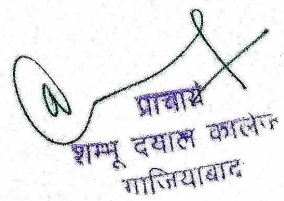 प्राचार्य
शम्भू दयाल कालेज
गाजियाबाद